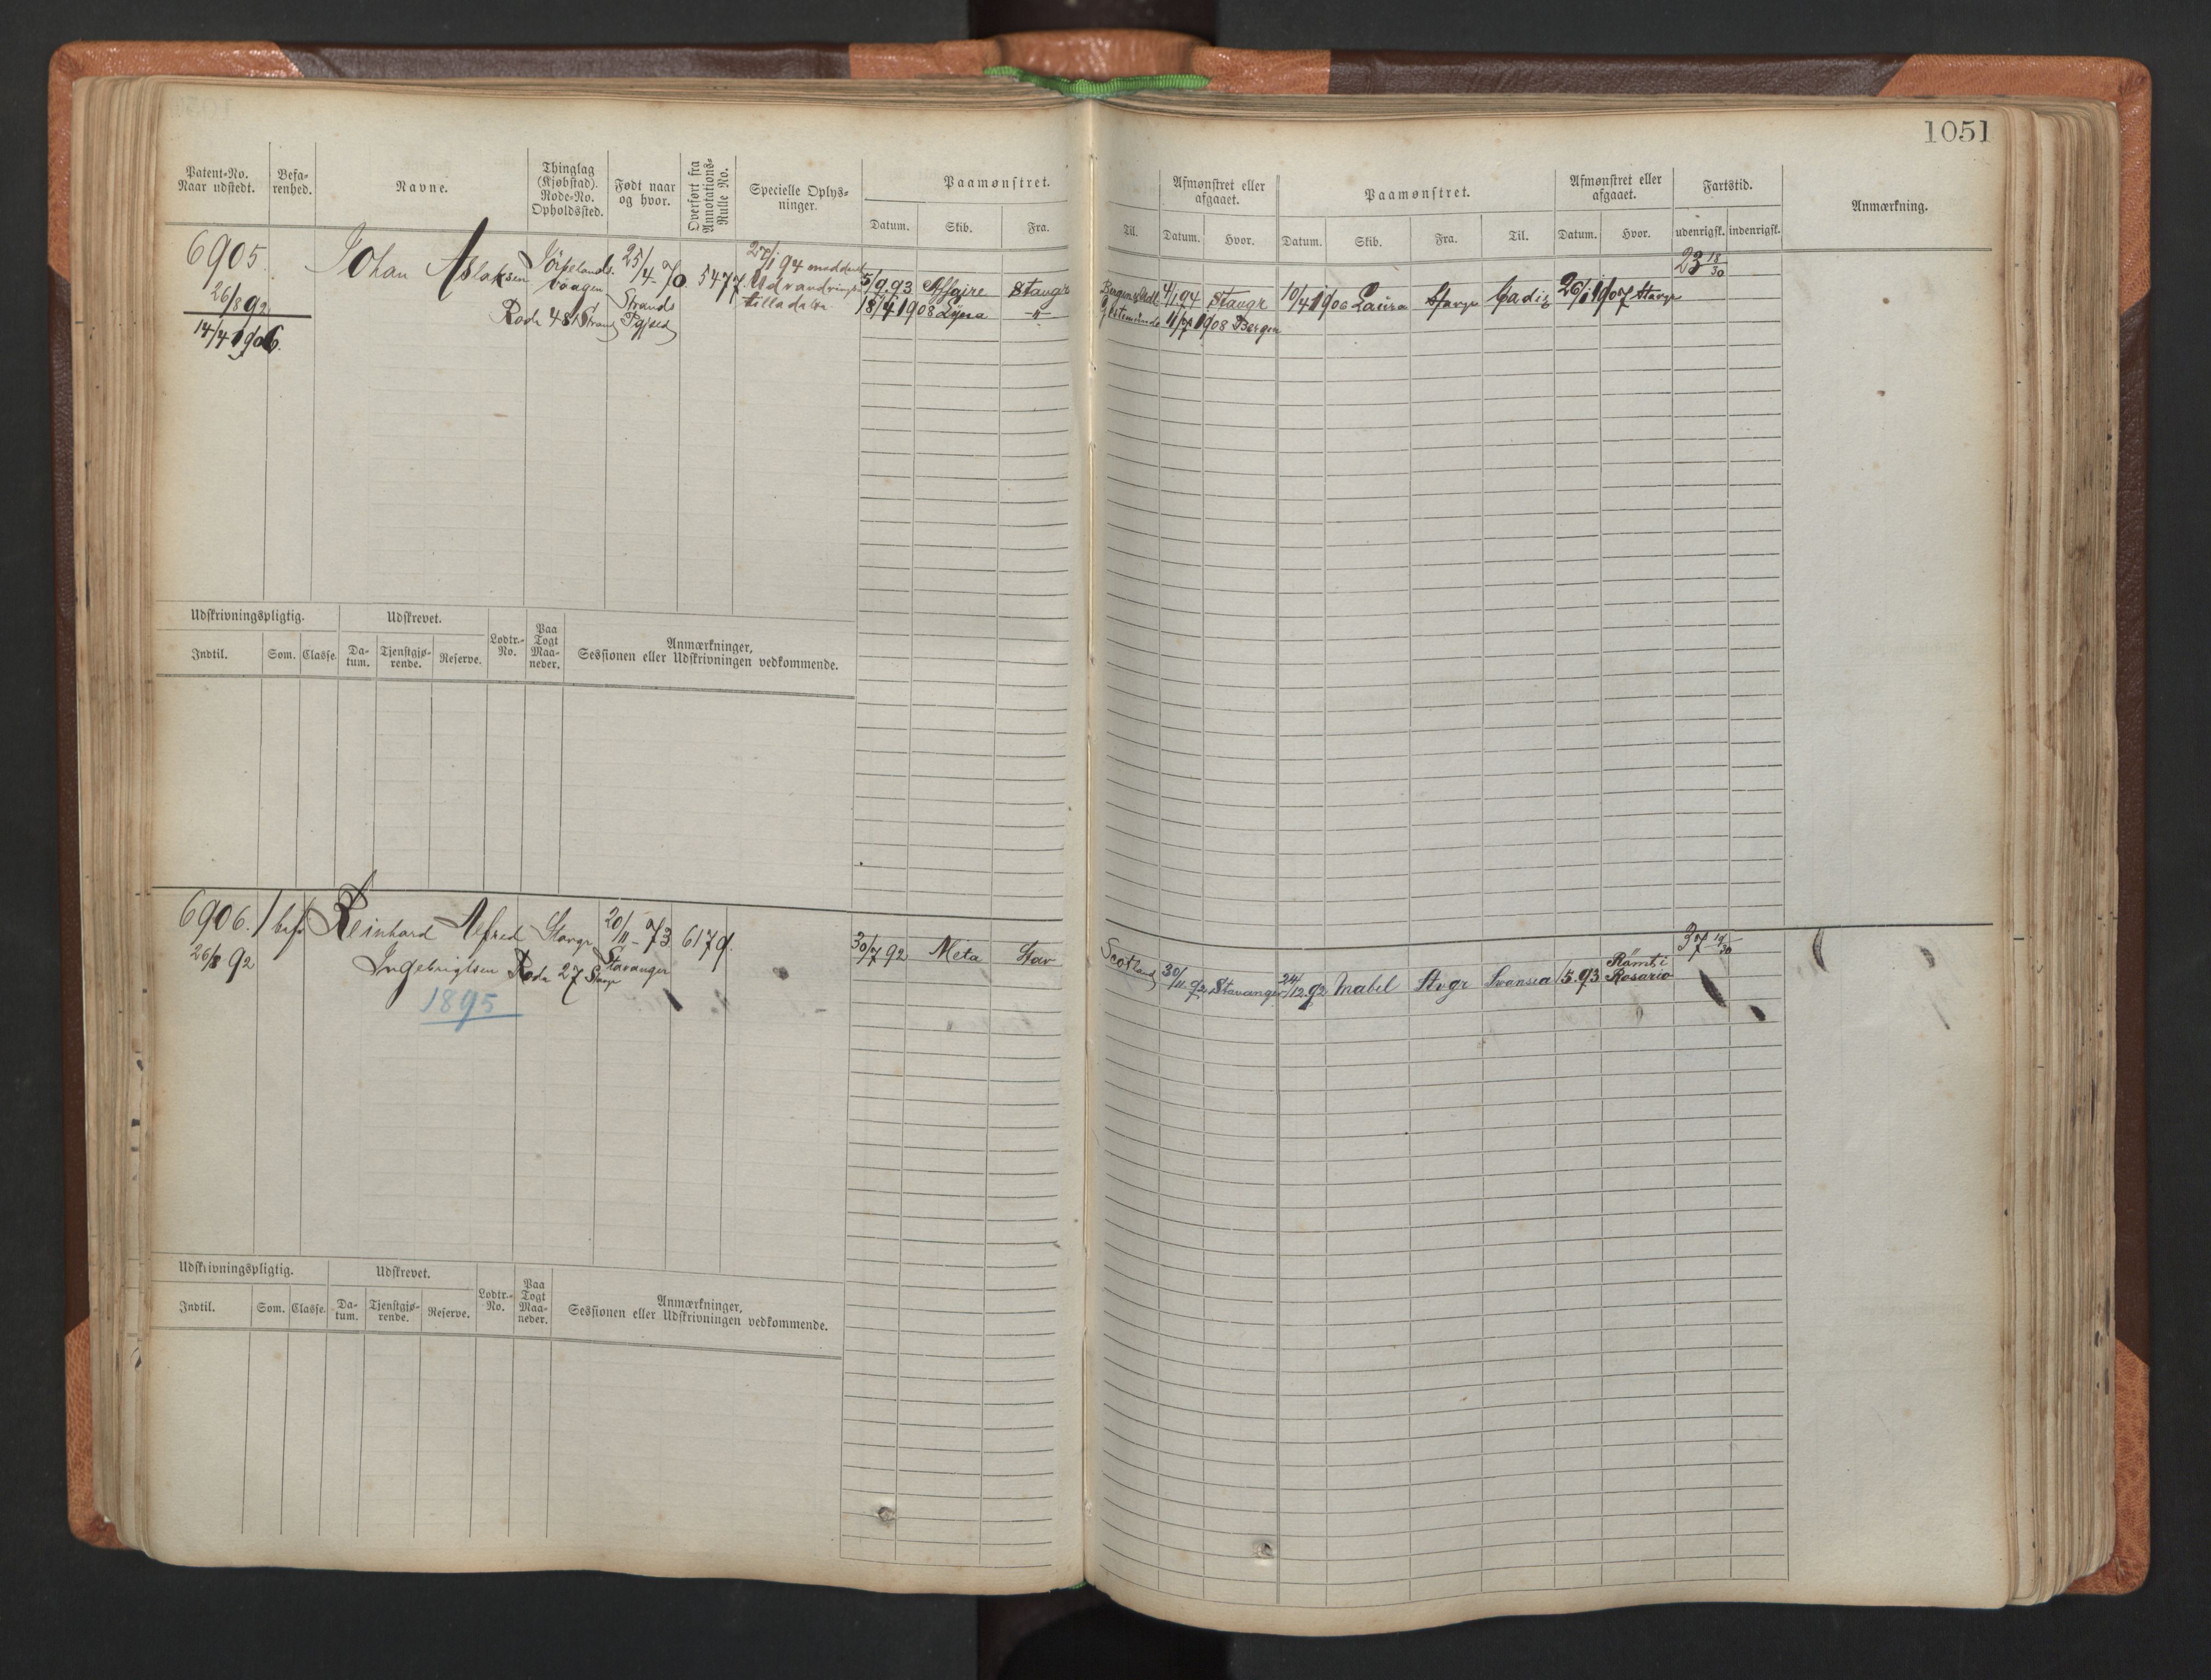 1051
Patent-No. Naar udstedt.
Befarenhed.
Navne.
Thinglag (Kjøbstad). Rode-No. Opholdssted.
Født naar og hvor.
Overført fra Annotations-Rulle No.
Specielle Oplysninger.
Paamønstret.
Datum. Skib. Fra.
Til.
Afmønstret eller afgaaet.
Datum. Hvor.
Paamønstret.
Datum. Skib. Fra. Til.
Afmønstret eller afgaaet.
Datum. Hvor.
Fartstid.
udenrigsk. indenrigsk.
Anmærkning.
6905.
26/8 92
14/4 1906.
Johan Aslaksen
Jörpelands
vaagen
Rode 48 Strand
25/4-70
Strands
Pgjæld
5477.
27/1 94 meddelt
Udvandring
5/9 93 Affaire Stavgr
18/4 1908 Lyna -"-
4/1 94 Stavgr
Gestemünde 11/7 1908 Bergen
10/4 1906 Laura Stavgr Cadiz 26/1 1907 Stavgr
23 18/30
Udskrivningspligtig.
Udskrevet.
Lodtr.-No.
Paa Togt Maaneder.
Anmærkninger,
Sessionen eller Udskrivningen vedkommende.
Indtil. Som. Classe. Datum. Tjenstgjørende. Reserve.
6906.
26/8 92
1 bef.
Reinhard Alfred
Ingebrigtsen
1895
Stavgr
Rode 27 Stavgr
20/11-73
Stavanger
6179.
30/7 92 Meta Stav
Scotland 30/11 92 Stavanger
24/12 92 Mabel Stvgr Swansea 15.93 Rømt i
Rosario
37 19/30
Udskrivningspligtig.
Udskrevet.
Lodtr.-No.
Paa Togt Maaneder.
Anmærkninger,
Sessionen eller Udskrivningen vedkommende.
Indtil. Som. Classe. Datum. Tjenstgjørende. Reserve.